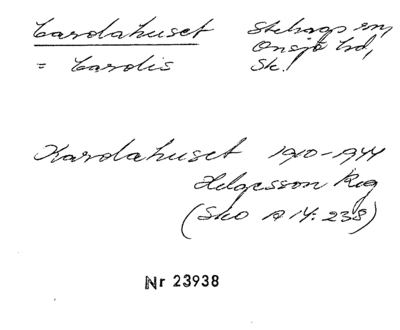 Cardahuset Stehags sn,
Onsjö hd,
= Cardis Sk.
Kardahuset 1910-1944
Helgesson Reg
(Sko A 14: 238)
Nr 23938